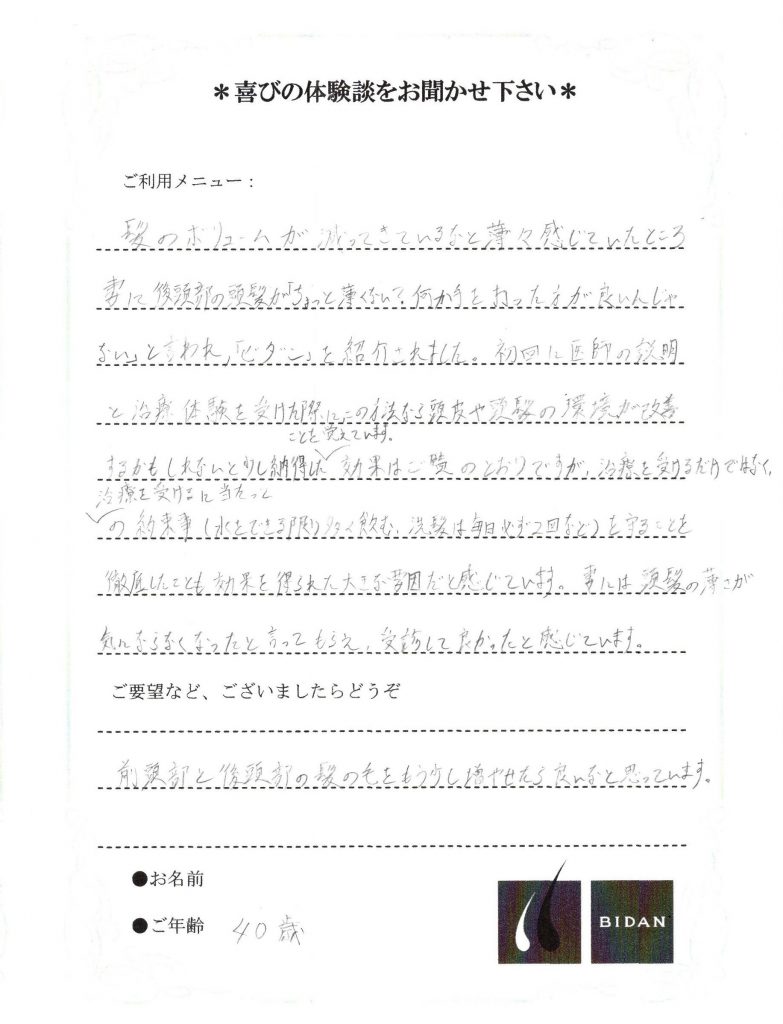 ＊喜びの体験談をお聞かせ下さい＊
ご利用メニュー：
髪のボリュームが減ってきているなと薄々感じていたところ
妻に後頭部の頭髪が「ちょっと薄くない？何か手を打った方が良いんじゃ
ない」と言われ、「ビダン」を紹介されました。初回に医師の説明
と治療体験を受けた際に、この手法なら頭皮や頭髪の環境が改善
ことを覚えています。
するかもしれないと少し納得した 効果はご覧のとおりですが、治療を受けるだけではなく、
治療を受けるに当たって
の約束事（水をできる限り多く飲む、洗髪は毎日必ず2回など）を守ることを
徹底したことも効果を得られた大きな要因だと感じています。妻には頭髪の薄さが
気にならなくなったと言ってもらえ、受診して良かったと感じています。
ご要望など、ございましたらどうぞ
前頭部と後頭部の髪の毛をもう少し増やせたら良いなと思っています。
●お名前
●ご年齢 40歳
BIDAN